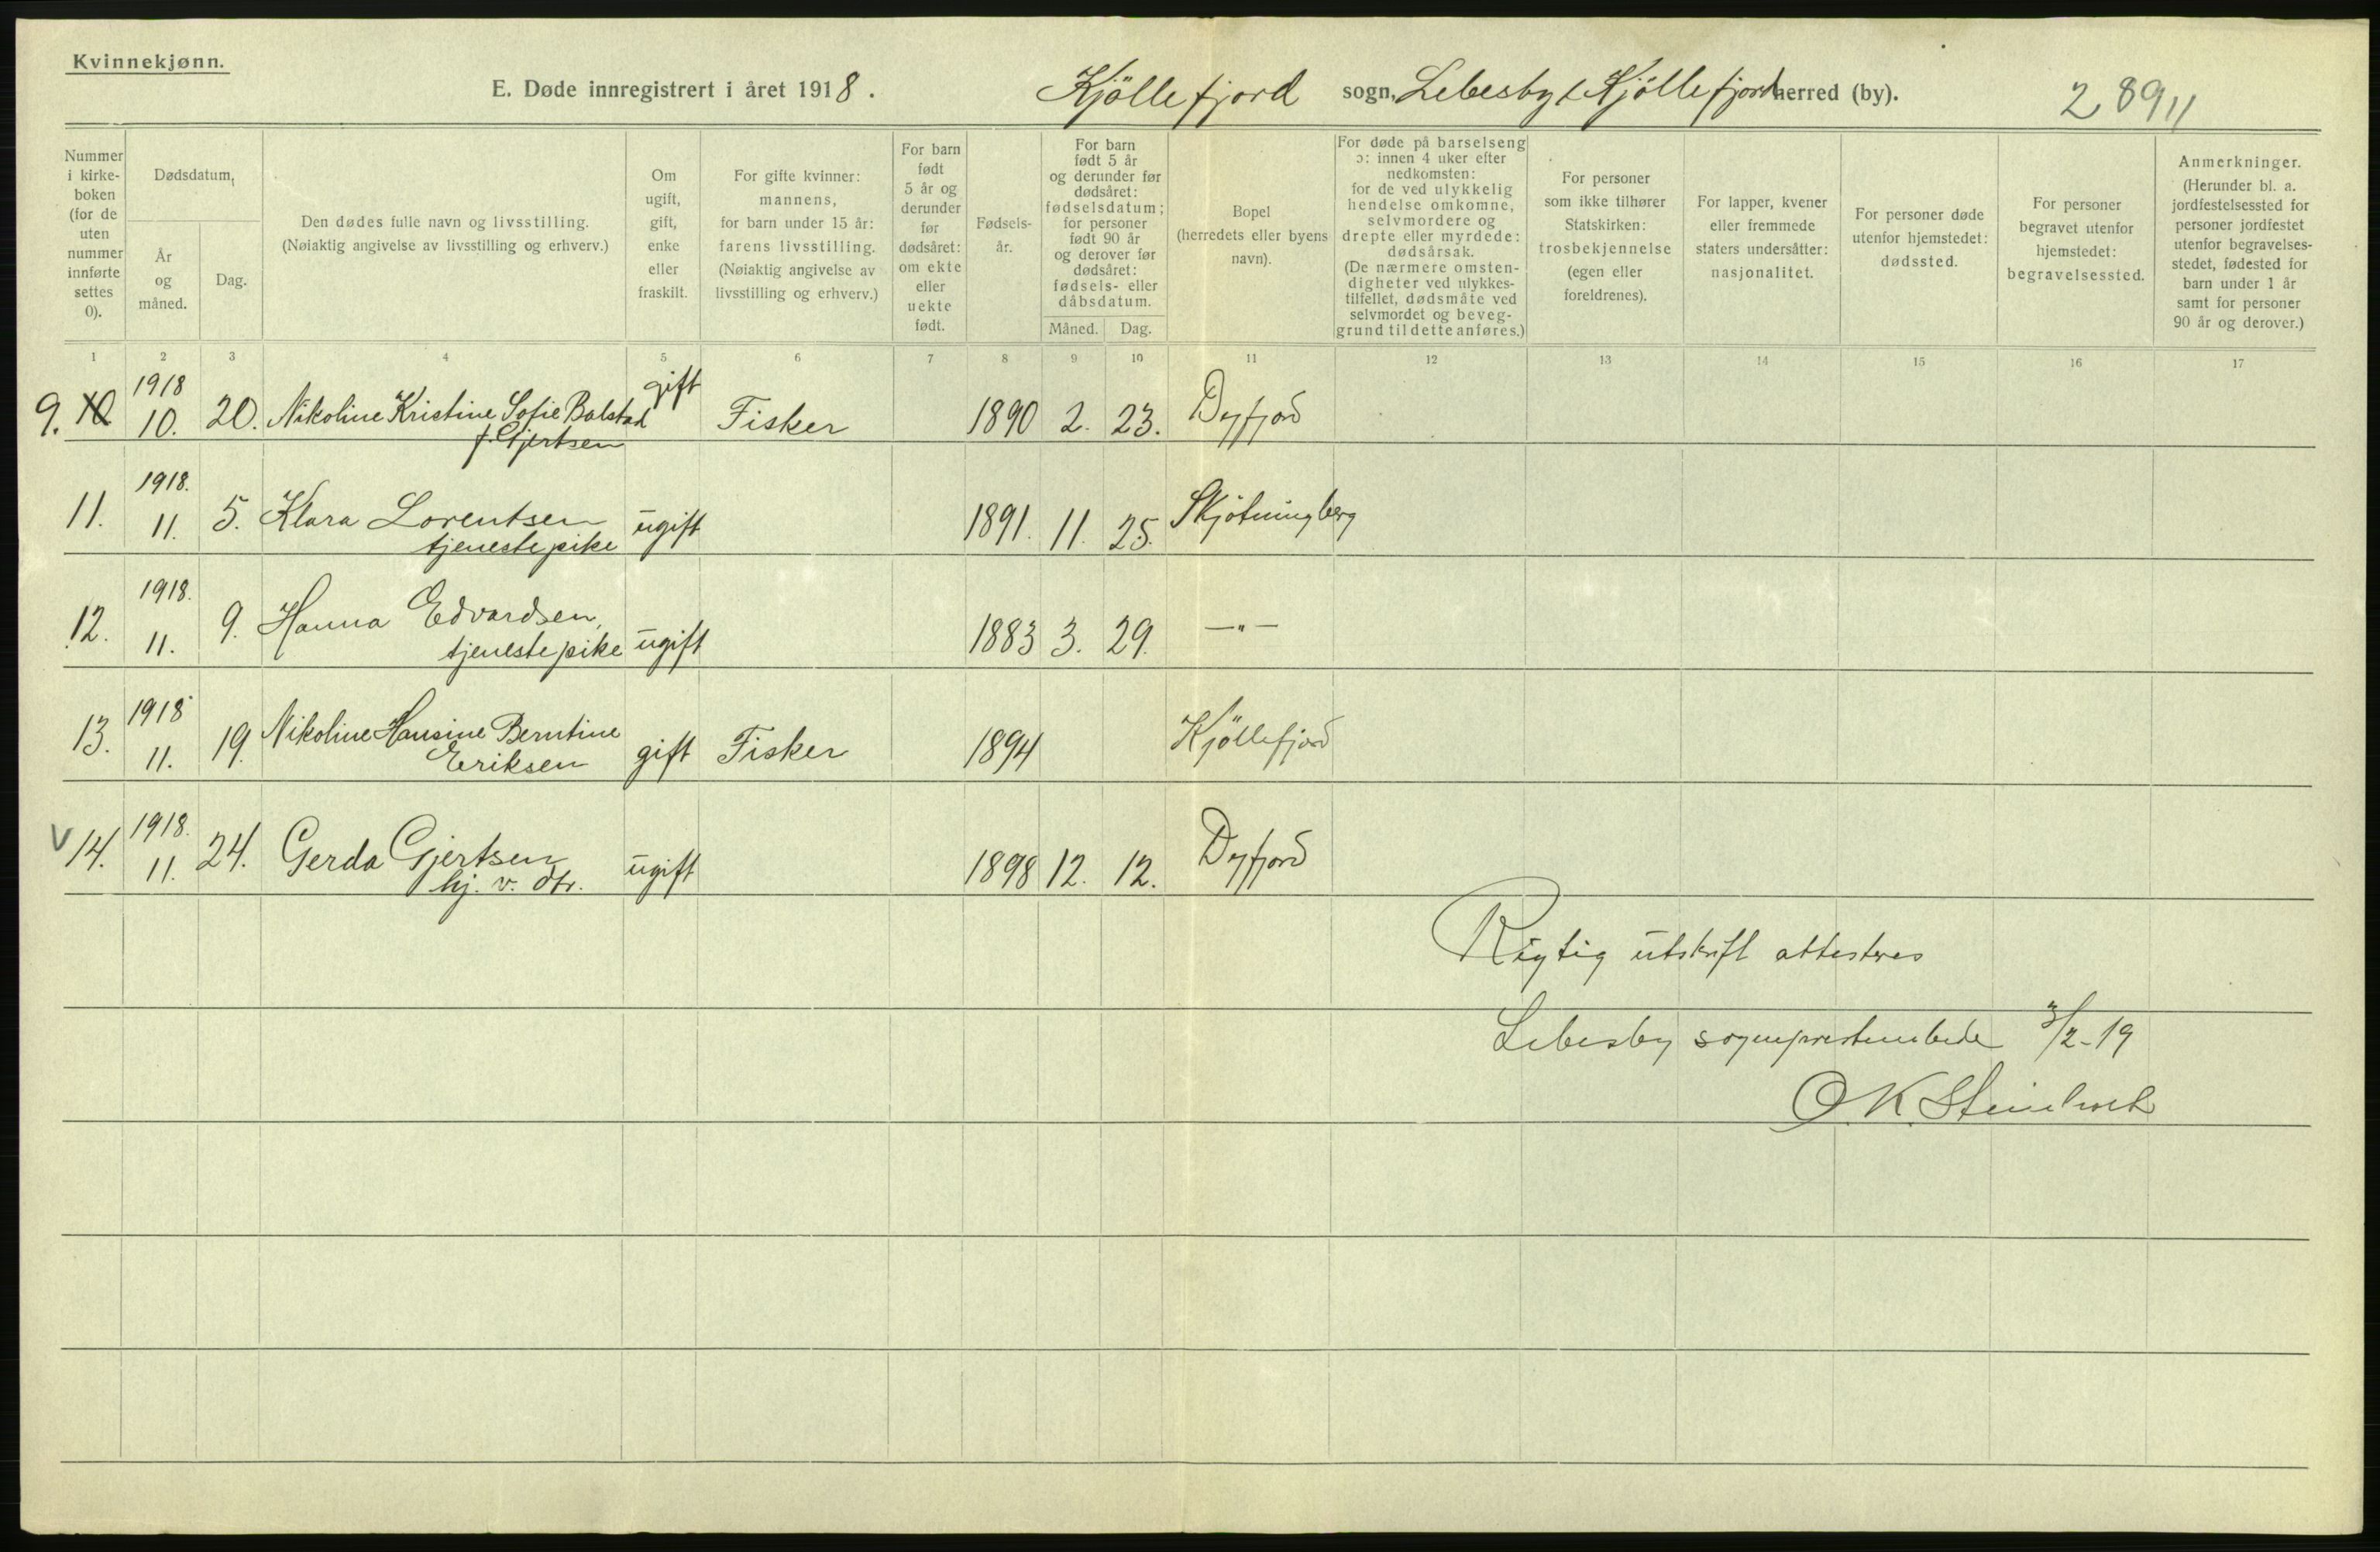 Kvinnekjønn.
E. Døde innregistrert i året 1918. Kjöllefjord sogn, Lebesby / Kjöllefjord herred (by). 2 8911
Nummer i kirke-boken (for de uten nummer innførte settes 0).
Dødsdatum,
År og måned.
Dag.
Den dødes fulle navn og livsstilling.
(Nøiaktig angivelse av livsstilling og erhverv.)
Om ugift, gift, enke eller fraskilt.
For gifte kvinner: mannens, for barn under 15 år: farens livsstilling. (Nøiaktig angivelse av livsstilling og erhverv.)
For barn født 5 år og derunder før dødsåret: om ekte eller uekte født.
Fødsels-år.
For barn født 5 år og derunder før dødsåret: fødselsdatum; for personer født 90 år og derover før dødsåret: fødsels- eller dåbsdatum.
Måned. Dag.
Bopel (herredets eller byens navn).
For døde på barselseng ɔ: innen 4 uker efter nedkomsten: for de ved ulykkelig hendelse omkomne, selvmordere og drepte eller myrdede: dødsårsak. (De nærmere omsten-digheter ved ulykkes-tilfellet, dødsmåte ved selvmordet og beveg-grund til dette anføres.)
For personer som ikke tilhører Statskirken: trosbekjennelse (egen eller foreldrenes).
For lapper, kvener eller fremmede staters undersåtter: nasjonalitet.
For personer døde utenfor hjemstedet: dødssted.
For personer begravet utenfor hjemstedet: begravelsessted.
Anmerkninger. (Herunder bl. a. jordfestelsessted for personer jordfestet utenfor begravelses-stedet, fødested for barn under 1 år samt for personer 90 år og derover.)
1 2 3 4 5 6 7 8 9 10 11 12 13 14 15 16 17
1918 gift
9. 10 10. 20. Nikoline Kristine Sofie Balstad Fisker 1890 2. 23. Dyfjord
f. Gjertsen
1918.
11. 11. 5. Klara Lorentsen ugift 1891. 11. 25. Skjötningberg
tjenestepike
1918.
12. 11. 9. Hanna Edvardsen, ugift 1883 3. 29. —"—
tjenestepike
1918
13. 11. 19. Nikoline Hansine Berntine gift Fisker 1894 Kjöllefjord
Eriksen
1918.
V 14. 11. 24. Gerda Gjertsen ugift 1898 12. 12. Dyfjord
hj. v. dtr.
Rigtig utskrift attesteres
Lebesby sogneprestembede 3/2-19
O. K.